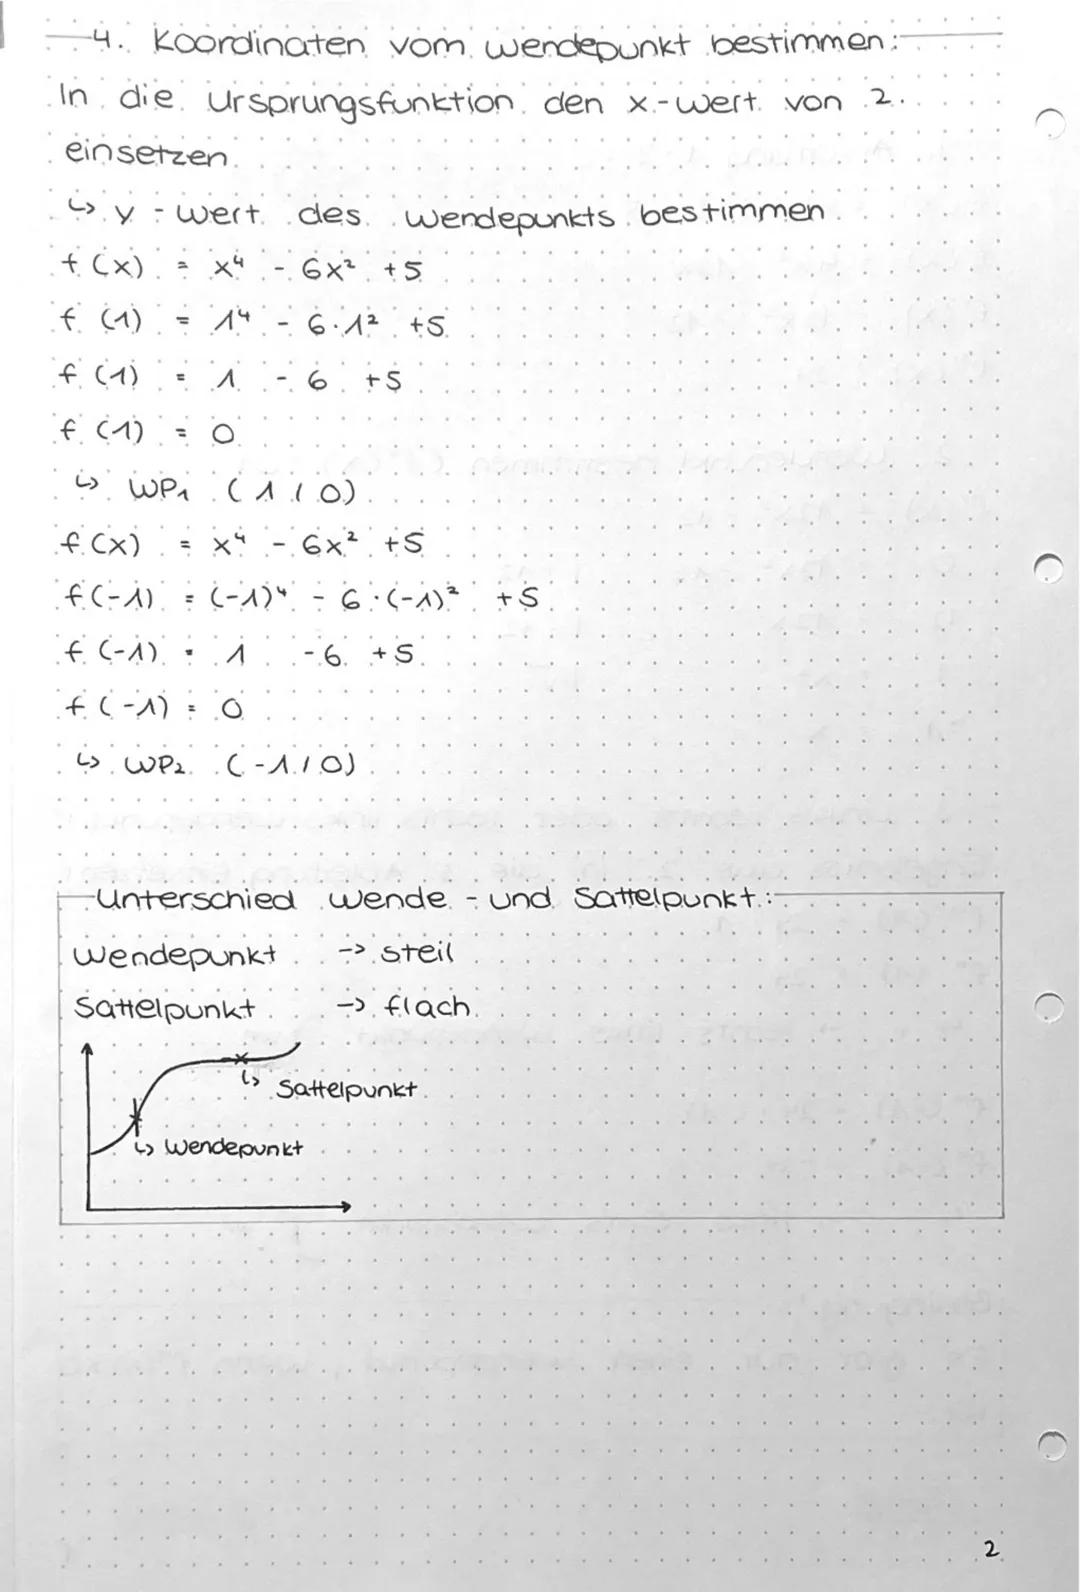 4. Koordinaten vom Wendepunkt bestimmen:
In die Ursprungsfunktion den x-Wert von 2.
einsetzen
↳ y-Wert des Wendepunkts bestimmen
f(x) = x⁴ - 6x² + 5
f(1) = 1⁴ - 6·1² + 5
f(1) = 1 - 6 + 5
f(1) = 0
↳ WP₁ (1/0)
f(x) = x⁴ - 6x² + 5
f(-1) = (-1)⁴ - 6·(-1)² + 5
f(-1) = 1 - 6 + 5
f(-1) = 0
↳ WP₂ (-1/0)
Unterschied Wende- und Sattelpunkt:
Wendepunkt -> steil
Sattelpunkt -> flach
↳ Sattelpunkt
↳ Wendepunkt
2